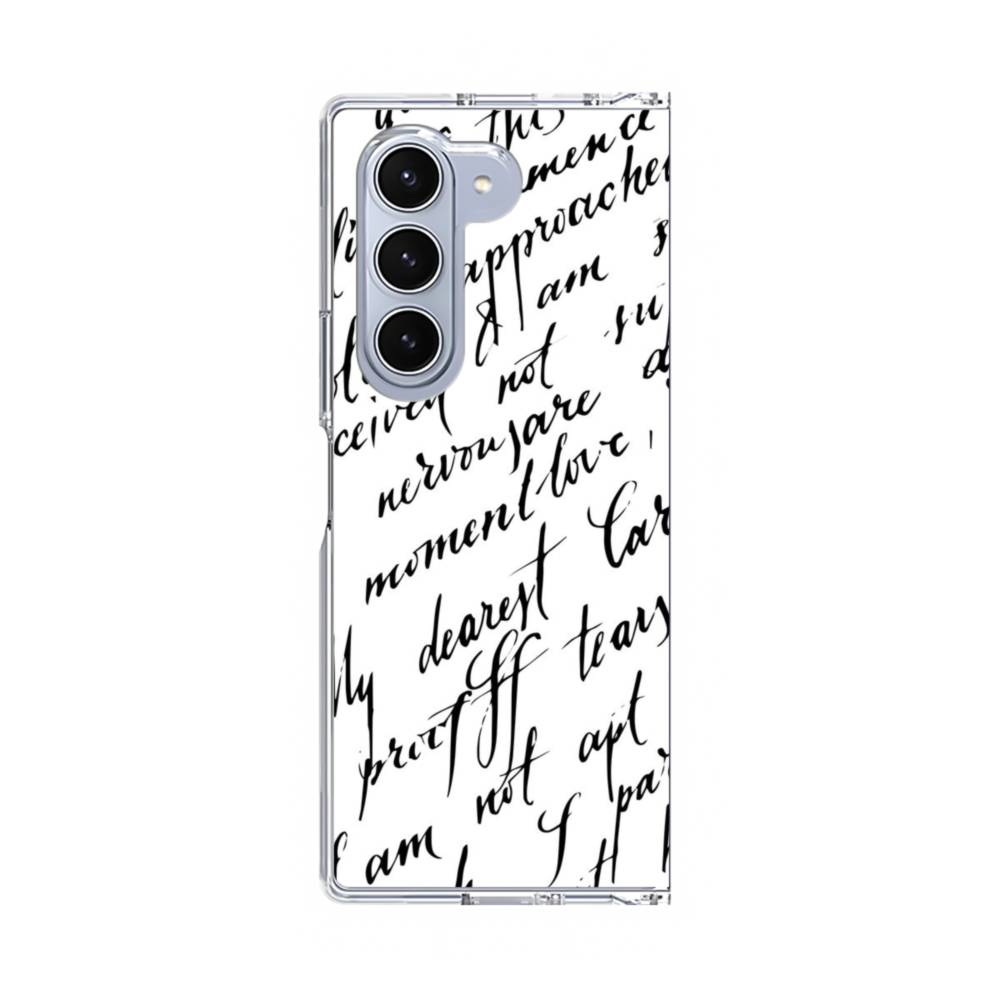 this
mence
approache
I am
su
ceived not
nervous are
moment love,
dearest Car
My
proof off tears
not apt
I am
I par